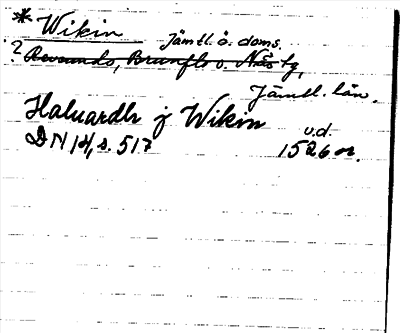 * Wikin Jämtl. ö. doms.
? Revsunds, Brunflo o. Näs tg,
Jämtl. län.
Haluardh j Wikin
u.d.
DN 14, s. 517 1526